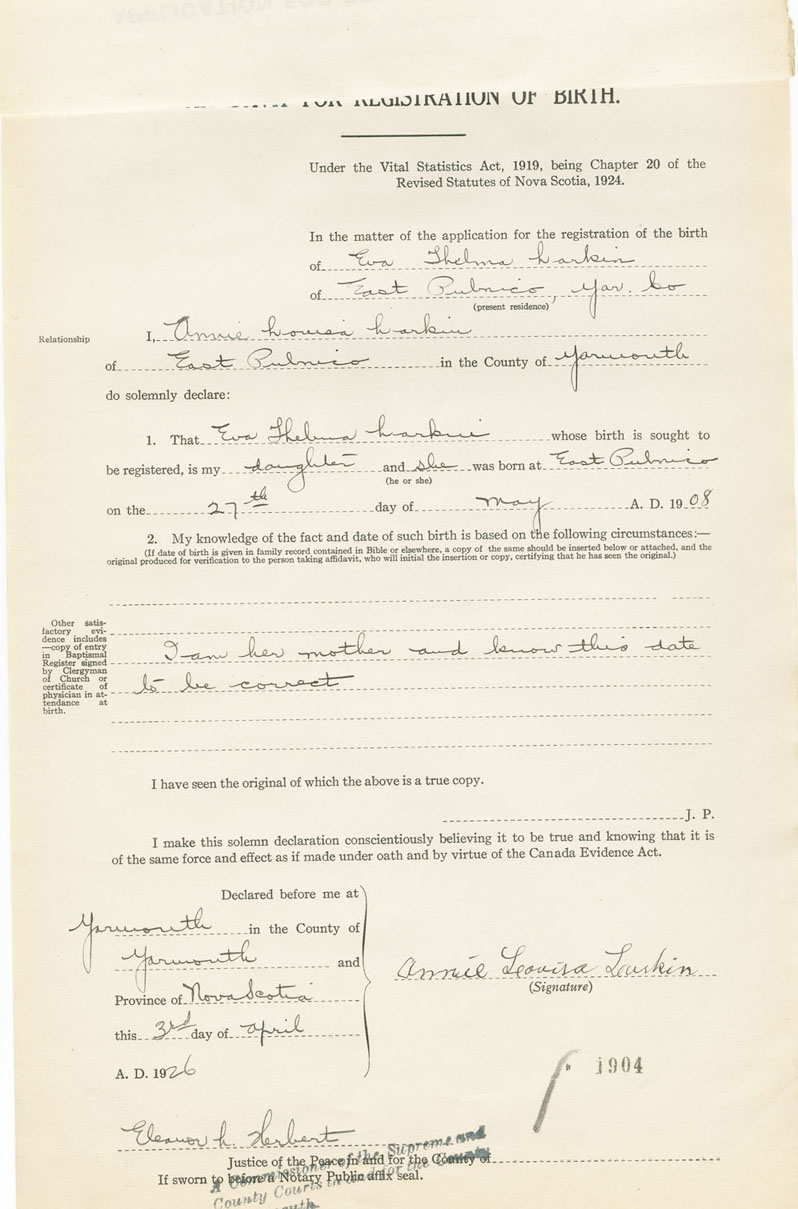 FOR REGISTRATION OF BIRTH.
Under the Vital Statistics Act, 1919, being Chapter 20 of the
Revised Statutes of Nova Scotia, 1924.
In the matter of the application for the registration of the birth
of Eva Thelma Larkin
of East Pubnico, Yar. Co
(present residence)
Relationship
I, Annie Louisa Larkin
of East Pubnico in the County of Yarmouth
do solemnly declare:
1. That Eva Thelma Larkin whose birth is sought to
be registered, is my daughter and she was born at East Pubnico
(he or she)
on the 27th day of May A. D. 1908
2. My knowledge of the fact and date of such birth is based on the following circumstances:—
(If date of birth is given in family record contained in Bible or elsewhere, a copy of the same should be inserted below or attached, and the
original produced for verification to the person taking affidavit, who will initial the insertion or copy, certifying that he has seen the original.)
Other satis-
factory evi-
dence includes
—copy of entry
in Baptismal
Register signed
by Clergyman
of Church or
certificate of
physician in at-
tendance at
birth.
I am her mother and know this date
to be correct
I have seen the original of which the above is a true copy.
J. P.
I make this solemn declaration conscientiously believing it to be true and knowing that it is
of the same force and effect as if made under oath and by virtue of the Canada Evidence Act.
Declared before me at
Yarmouth in the County of
Yarmouth and
Province of Nova Scotia
this 3rd day of April
A. D. 1926
Annie Louisa Larkin
(Signature)
1904
Eleanor L. Herbert
Justice of the Peace in and for the County of
If sworn to before a Notary Public affix seal.
A Commissioner of the Supreme and
County Courts in and for the County